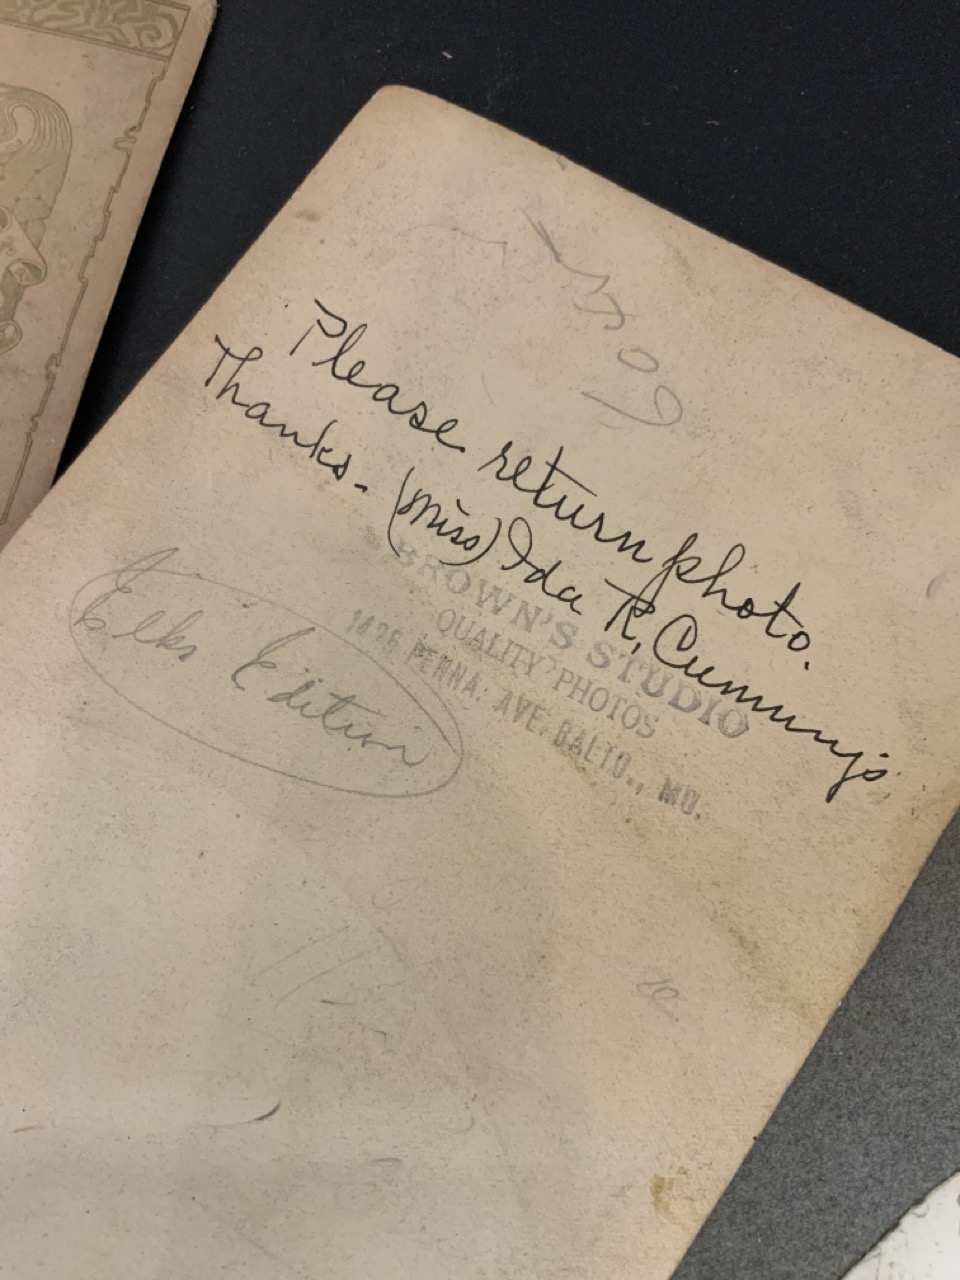 Please return photo.
Thanks. (Miss) Ida R. Cummings
BROWN'S STUDIO
QUALITY PHOTOS
1426 PENNA. AVE. BALTO., MD.
Elks Edition